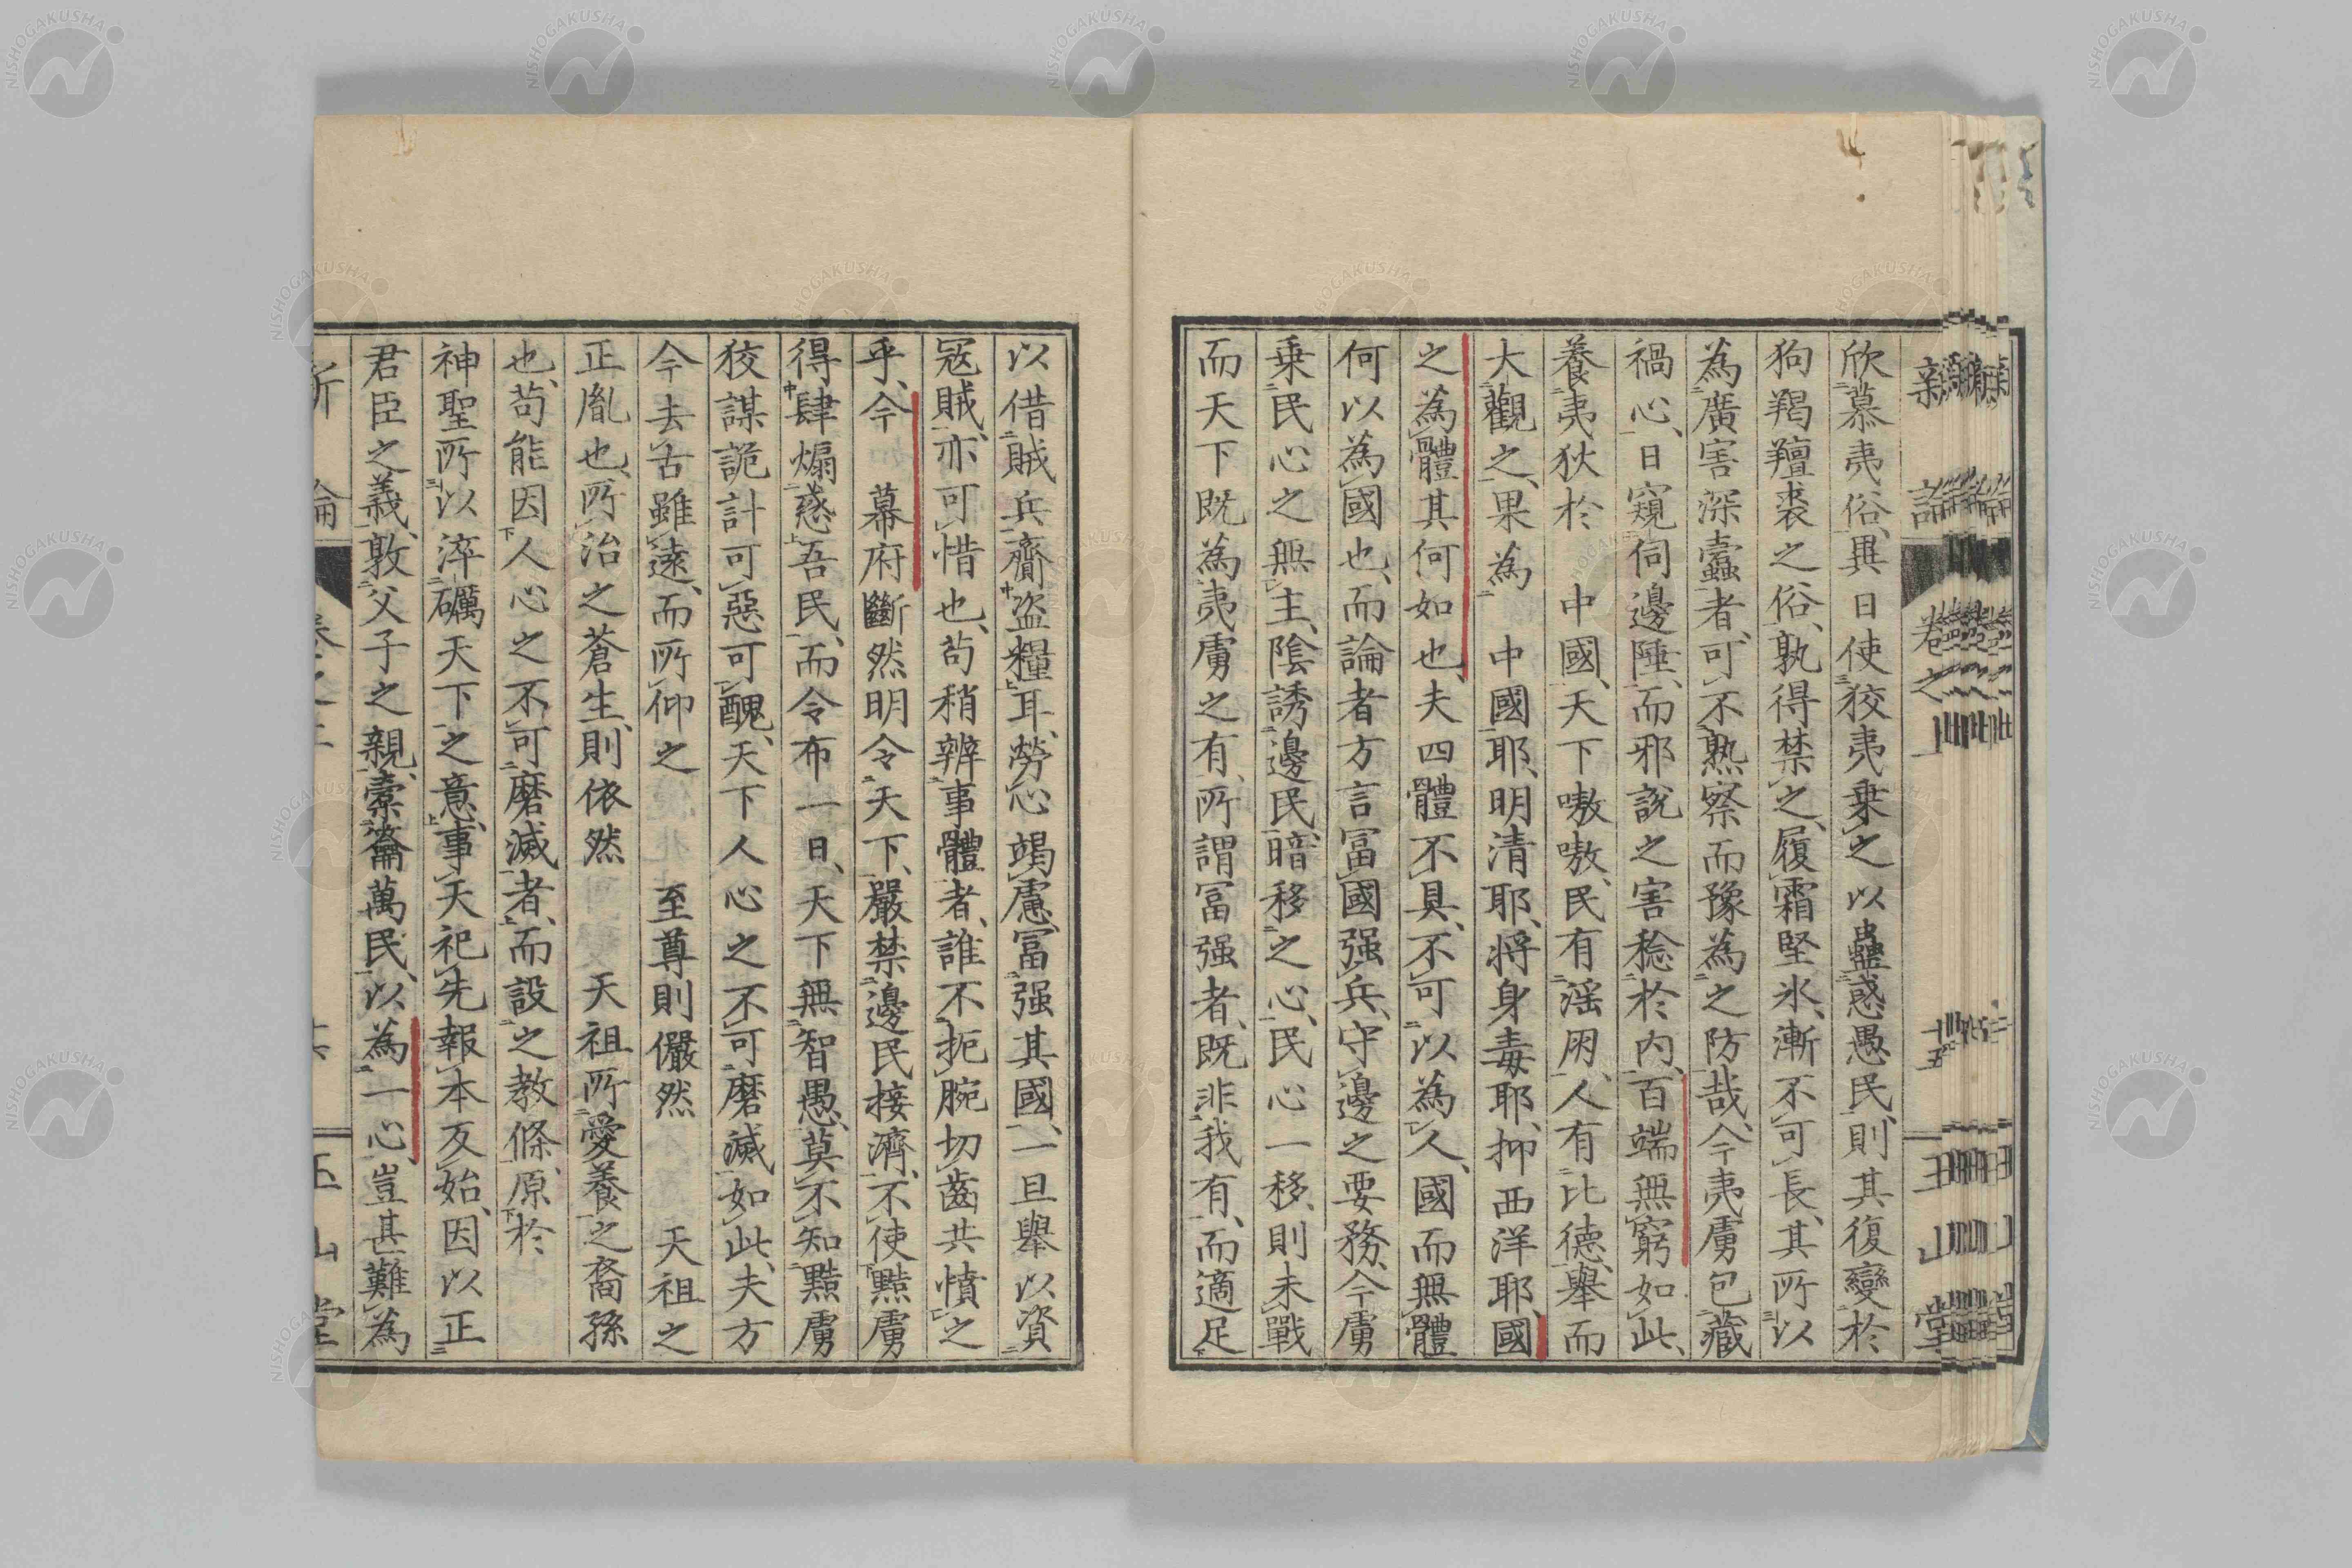 新論 卷之上 十五 玉山堂
欣慕夷俗、異日使狡夷乗之以蠱惑愚民、則其復變於
狗羯羶裘之俗、孰得禁之、履霜堅氷、漸不可長、其所以
為廣害深蠹者、可不熟察而豫為之防哉、今夷虜包藏
禍心、日窺伺邊陲、而邪説之害稔於內、百端無窮如此、
養夷狄於 中國、天下嗷嗷、民有淫朋、人有比德、舉而
大觀之、果為 中國耶、明清耶、將身毒耶、抑西洋耶、國
之為體其何如也、夫四體不具、不可以為人、國而無體
何以為國也、而論者方言冨國强兵、守邊之要務、今虜
乗民心之無主、陰誘邊民、暗移之心、民心一移、則未戰
而天下既為夷虜之有、所謂冨强者、既非我有、而適足
以借賊兵齎盗糧耳、勞心竭慮冨强其國、一旦舉以資
冦賊、亦可惜也、苟稍辨事體者、誰不扼腕切齒共憤之
乎、今 幕府斷然明令天下、嚴禁邊民接濟、不使黠虜
得肆煽惑吾民、而令布一日、天下無智愚、莫不知黠虜
狡謀詭計可惡可醜、天下人心之不可磨滅如此、夫方
今去古雖遠、而所仰之 至尊則儼然 天祖之
正胤也、所治之蒼生、則依然 天祖所愛養之裔孫
也、苟能因人心之不可磨滅者、而設之教條、原於
神聖所以淬礪天下之意、事天祀先報本反始、因以正
君臣之義、敦父子之親、橐籥萬民、以為一心豈甚難為